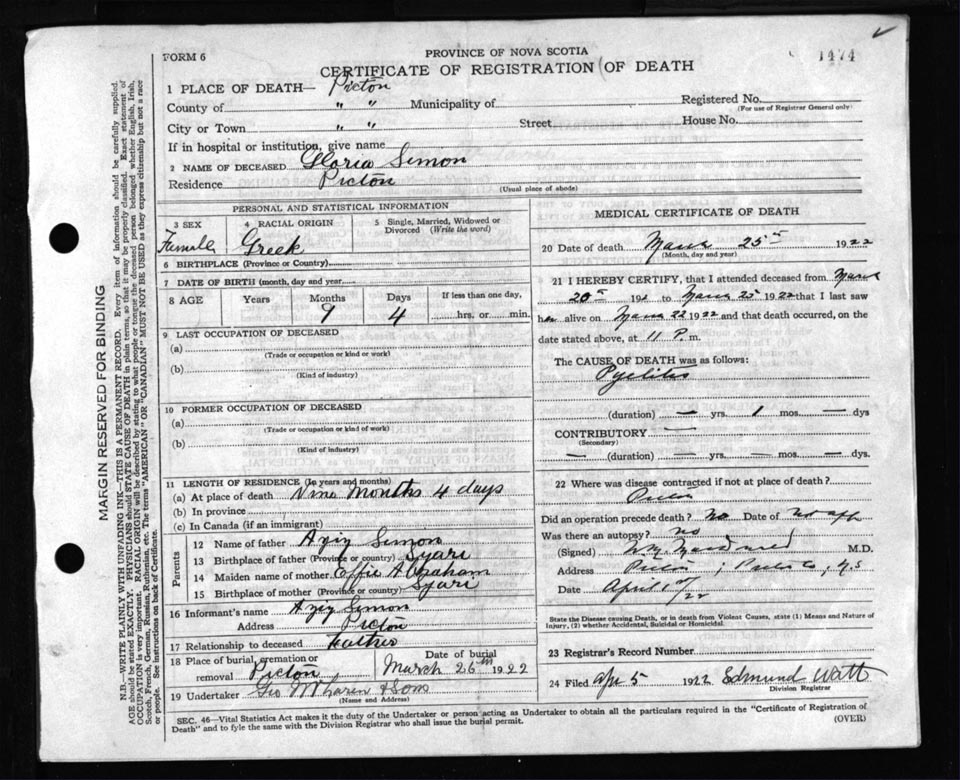 1474
FORM 6
PROVINCE OF NOVA SCOTIA
CERTIFICATE OF REGISTRATION OF DEATH
1 PLACE OF DEATH— Picton
County of " " Municipality of Registered No.
(For use of Registrar General only)
City or Town " " Street House No.
If in hospital or institution, give name
2 NAME OF DECEASED Gloria Simon
Residence Picton
(Usual place of abode)
PERSONAL AND STATISTICAL INFORMATION
3 SEX 4 RACIAL ORIGIN 5 Single, Married, Widowed or Divorced (Write the word)
Female Greek
6 BIRTHPLACE (Province or Country)
7 DATE OF BIRTH (month, day and year)
8 AGE Years Months Days If less than one day,
9 4 hrs. or min.
9 LAST OCCUPATION OF DECEASED
(a)
(Trade or occupation or kind or work)
(b)
(Kind of industry)
10 FORMER OCCUPATION OF DECEASED
(a)
(Trade or occupation or kind of work)
(b)
(Kind of industry)
11 LENGTH OF RESIDENCE (In years and months)
(a) At place of death Nine Months 4 days
(b) In province
(c) In Canada (if an immigrant)
Parents
12 Name of father Aziz Simon
13 Birthplace of father (Province or country) Syari
14 Maiden name of mother Effie Abraham
15 Birthplace of mother (Province or country) Syari
16 Informant's name Aziz Simon
Address Picton
17 Relationship to deceased Father
18 Place of burial, cremation or removal Picton
Date of burial
March 26th 1922
19 Undertaker & Sons
(Name and Address)
MEDICAL CERTIFICATE OF DEATH
20 Date of death March 25th 1922
(Month, day and year)
21 I HEREBY CERTIFY, that I attended deceased from March
20th 192 to March 25 1922 that I last saw
her alive on March 22 1922 and that death occurred, on the
date stated above, at 11 P. m.
The CAUSE OF DEATH was as follows:
Pyelitis
(duration) — yrs. 1 mos. — dys
CONTRIBUTORY —
(Secondary)
— (duration) — yrs. — mos. — dys.
22 Where was disease contracted if not at place of death?
Picton
Did an operation precede death? No Date of
Was there an autopsy? no
(Signed) M.D.
Address Picton, Pictou Co, N.S
Date April 1st/22
State the Disease causing Death, or in death from Violent Causes, state (1) Means and Nature of
Injury, (2) whether Accidental, Suicidal or Homicidal.
23 Registrar's Record Number
24 Filed Apr 5 1922 Edmund Watt
Division Registrar
SEC. 46—Vital Statistics Act makes it the duty of the Undertaker or person acting as Undertaker to obtain all the particulars required in the "Certificate of Registration of
Death" and to fyle the same with the Division Registrar who shall issue the burial permit.
(OVER)
MARGIN RESERVED FOR BINDING
N.B.—WRITE PLAINLY WITH UNFADING INK—THIS IS A PERMANENT RECORD. Every item of information should be carefully supplied.
AGE should be stated EXACTLY. PHYSICIANS should STATE CAUSE OF DEATH in plain terms, so that it may be properly classified. Exact statement of
OCCUPATION is very important. RACIAL ORIGIN will be described by stating to what people or tongue the deceased person belonged whether English, Irish,
Scotch, French, German, Russian, Ruthenian, etc. The terms "AMERICAN" OR "CANADIAN" MUST NOT BE USED as they express citizenship but not a race
or people. See instructions on back of Certificate.